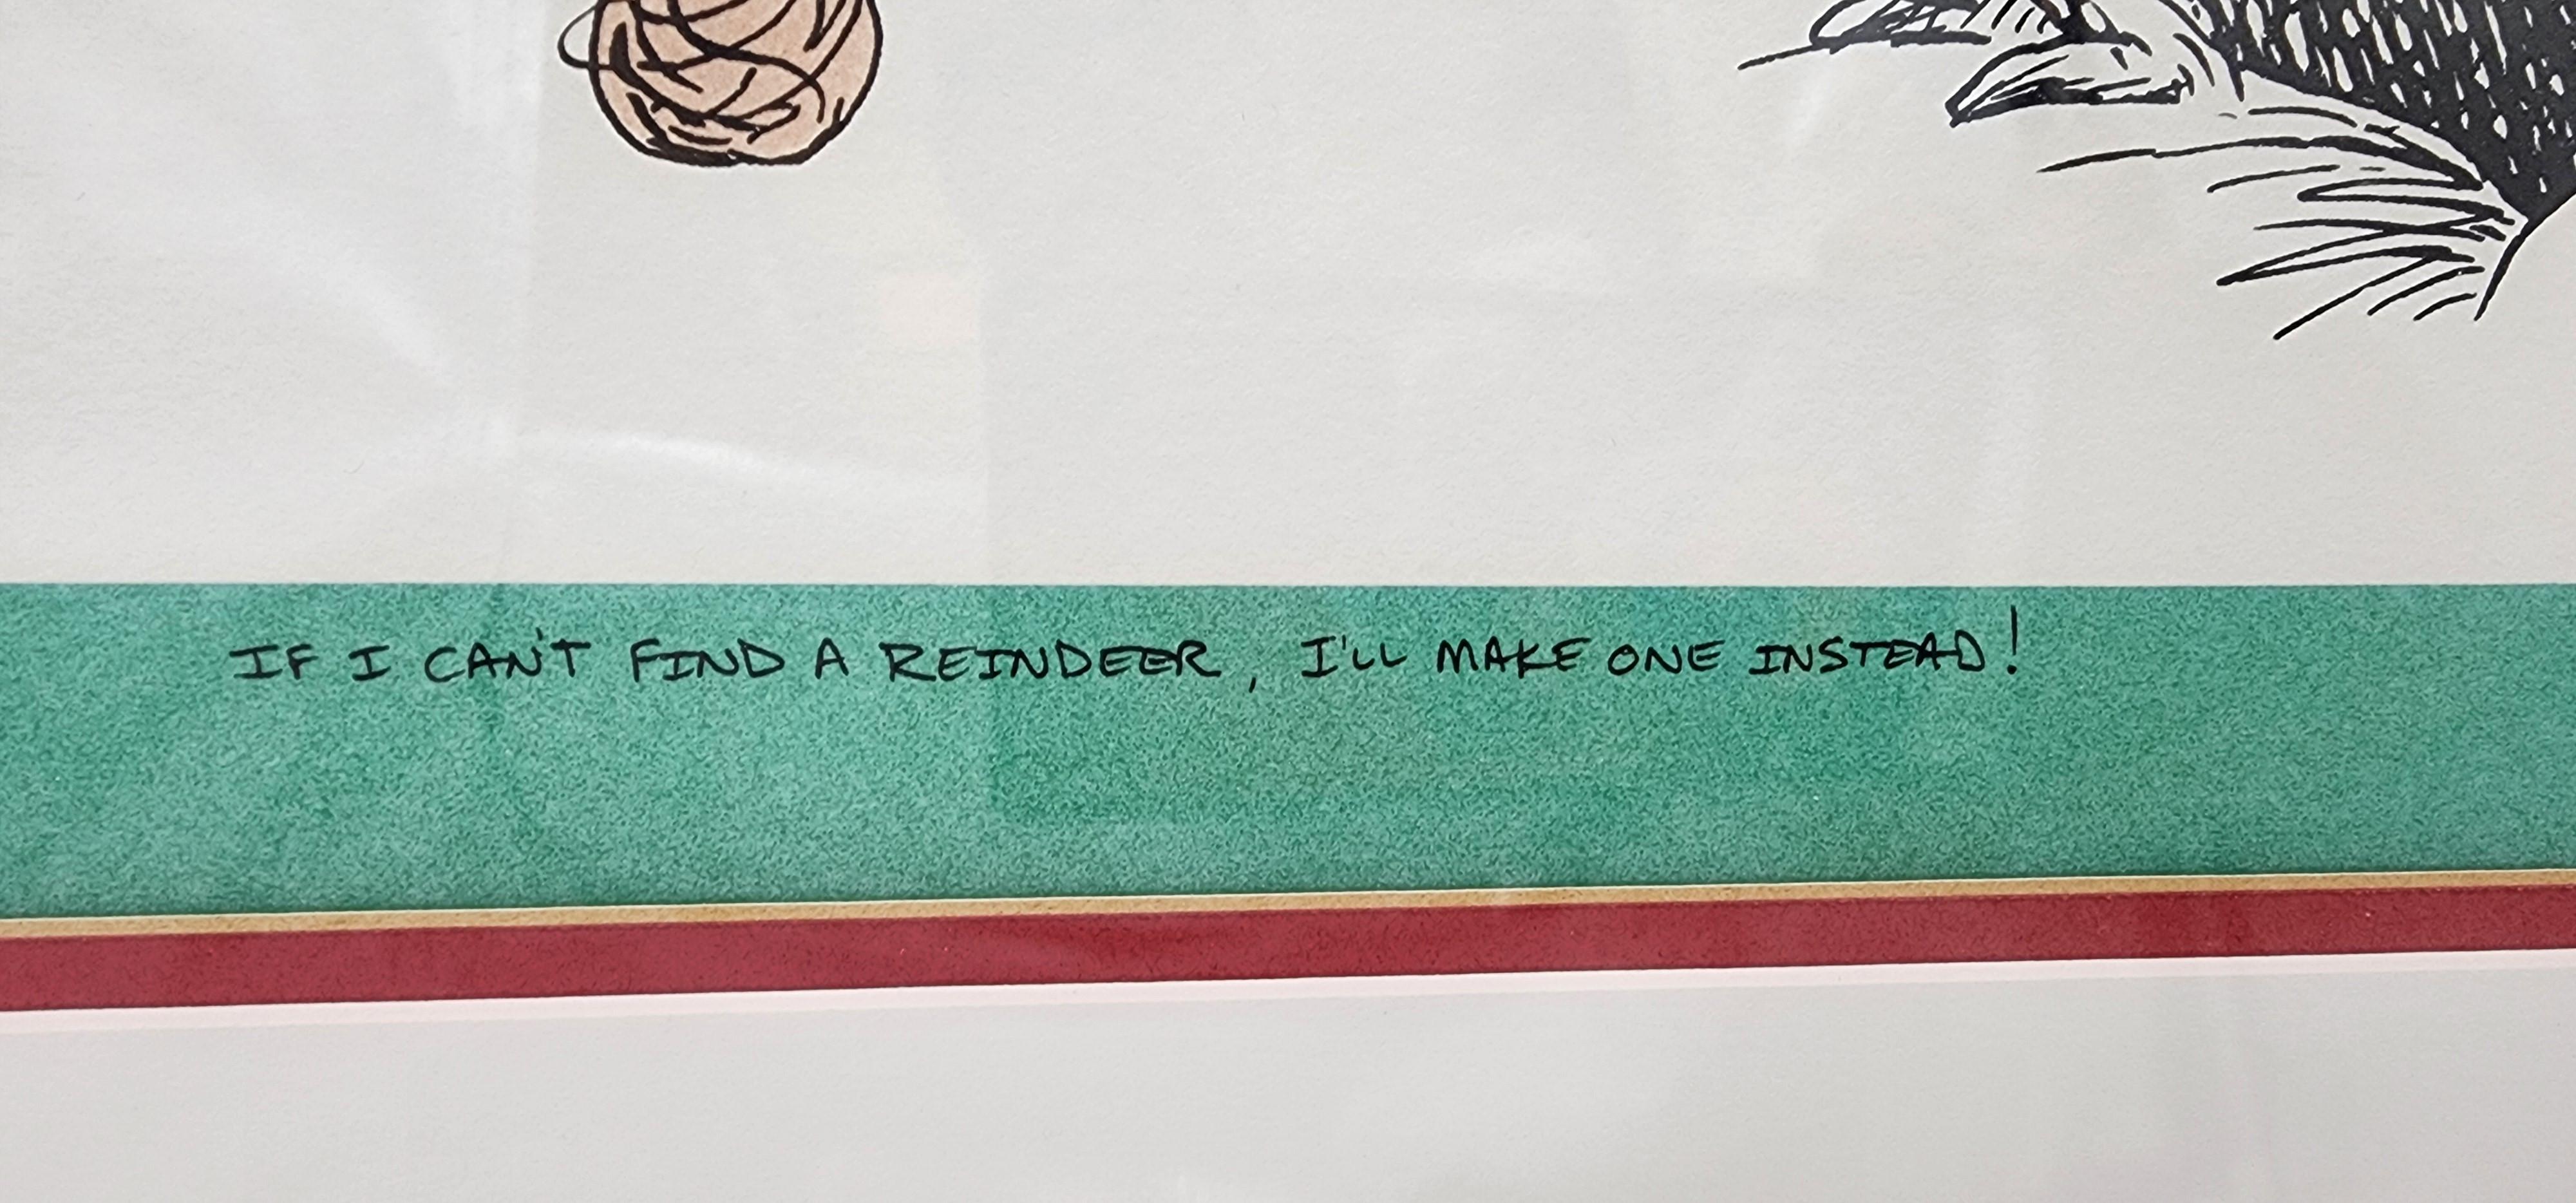 IF I CAN'T FIND A REINDEER, I'LL MAKE ONE INSTEAD!